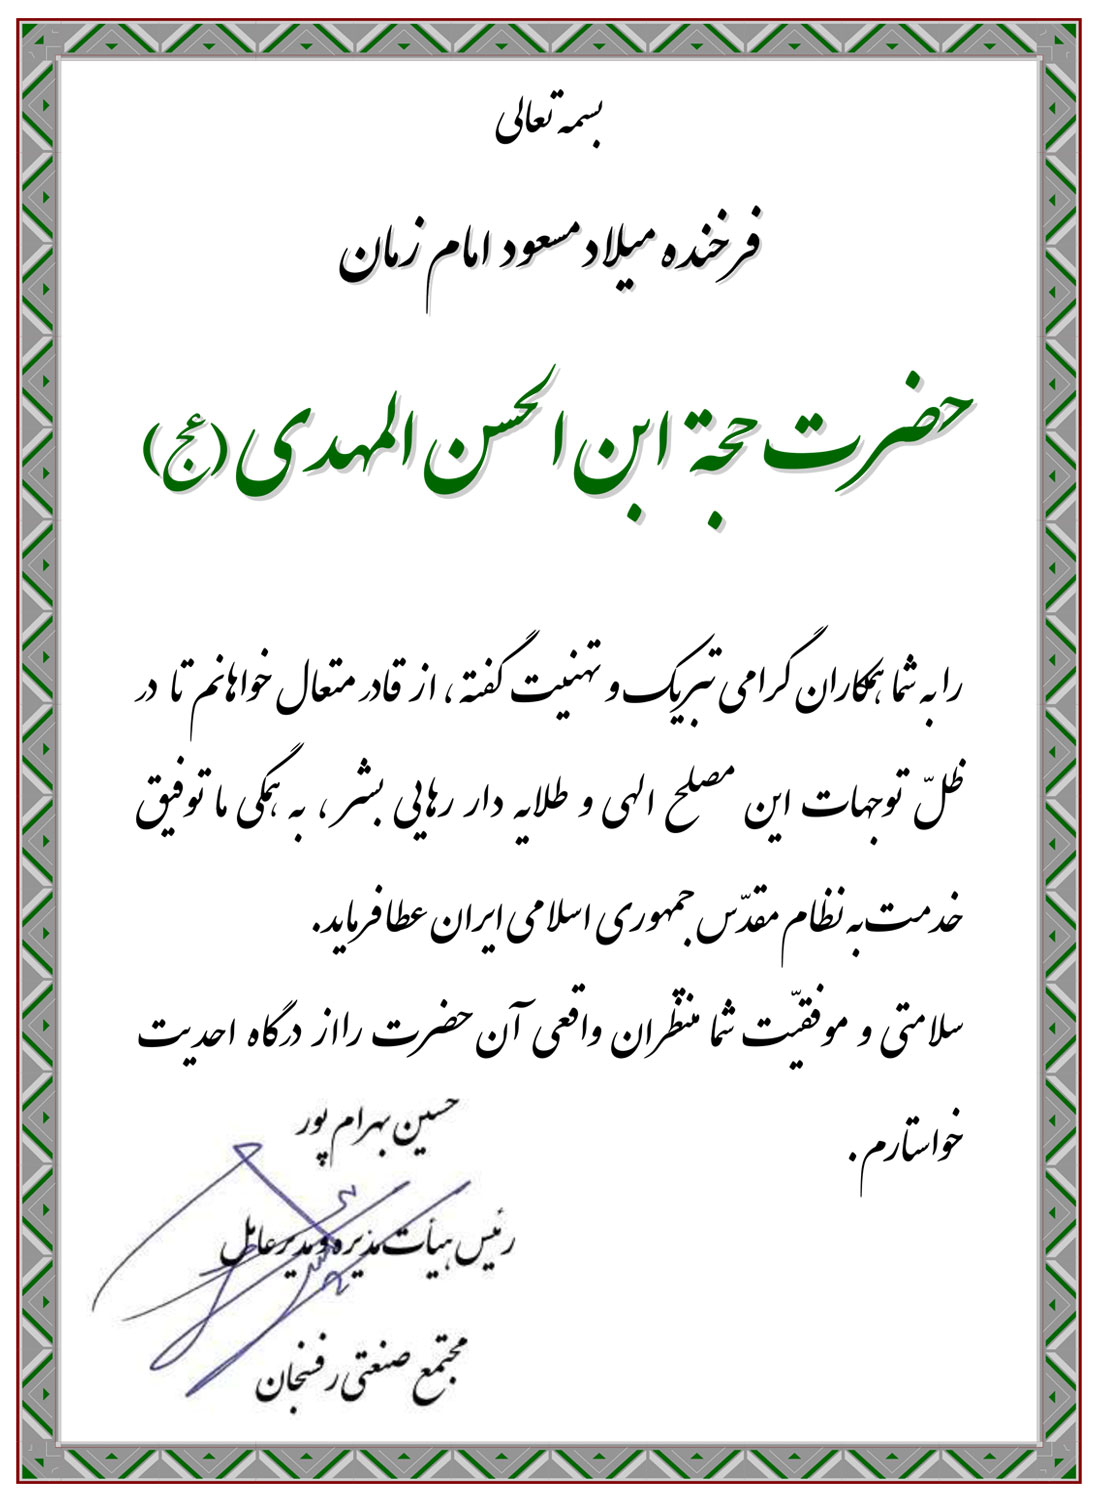 بسمه تعالی
فرخنده میلاد مسعود امام زمان
حضرت حجة ابن الحسن المهدی (عج)
را به شما همکاران گرامی تبریک و تهنیت گفته ، از قادر متعال خواهانم تا در
ظلّ توجهات این مصلح الهی و طلایه دار رهایی بشر ، به همگی ما توفیق
خدمت به نظام مقدّس جمهوری اسلامی ایران عطا فرماید.
سلامتی و موفقیّت شما منتظران واقعی آن حضرت را از درگاه احدیت
خواستارم .
حسین بهرام پور
رئیس هیأت مدیره و مدیر عامل
مجتمع صنعتی رفسنجان